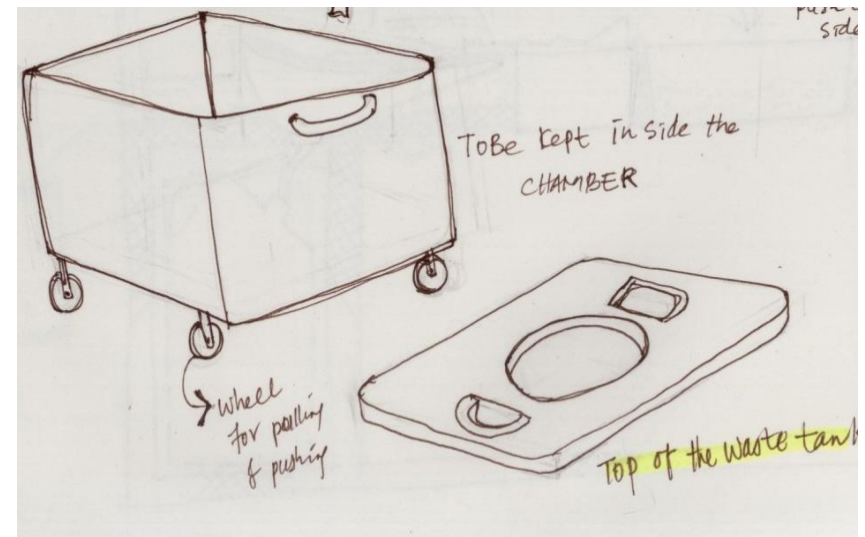 side
ToBe kept inside the
CHAMBER
Wheel
for pulling
& pushing
Top of the waste tank